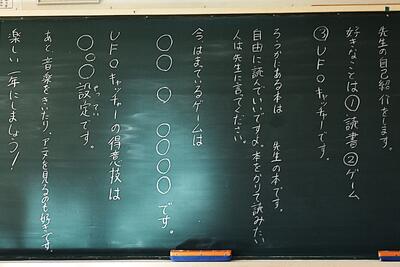 先生の自己紹介をします。
好きなことは①読書②ゲーム
③UFOキャッチャーです。
ろうかにある本は 先生の本です。
自由に読んでいいですよ。本をかりて読みたい
人は先生に言てください。
今はまているゲームは
○○ ○ ○○○○です。
UFOキャッチャーの得意技は
○○○設定です。
せってい
あと音楽をきいたり、アニメを見るのも好きです。
楽しい一年にしましょう!